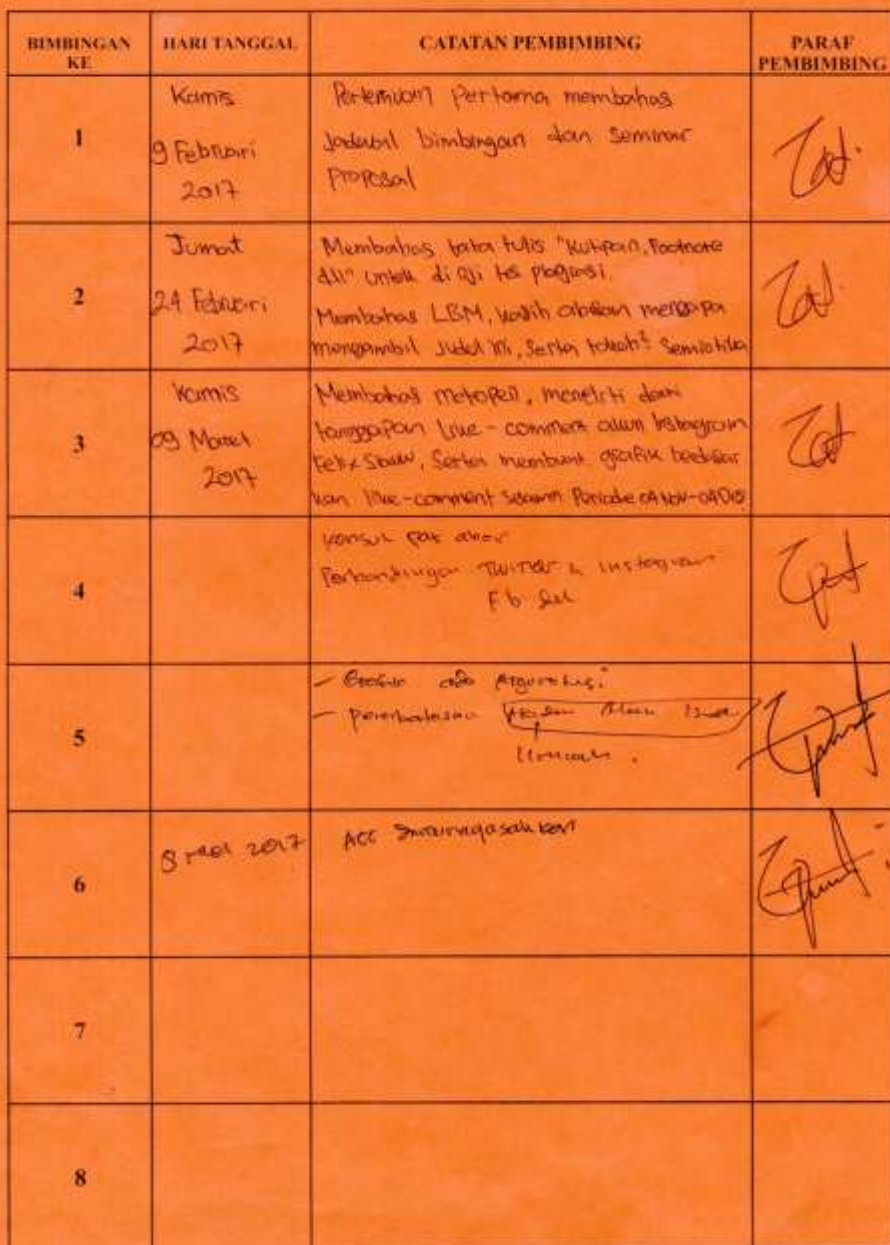 BIMBINGAN
KE
HARI TANGGAL
CATATAN PEMBIMBING
PARAF
PEMBIMBING
1
Kamis
9 Februari
2017
Pertemuan Pertama membahas
Jadwal bimbingan dan Seminar
Proposal
2
Jumat
24 Februari
2017
Membahas tata tulis "Kutipan, Footnote
dll" untuk di uji tes plagiasi.
Membahas LBM, mengapa
mengambil Judul ini, Serta tokoh² Semiotika
3
Kamis
09 Maret
2017
Membahas metopen, meneliti dari
tanggapan like-comment akun Instagram
Felix Siauw, Serta membuat grafik berdasar
kan like-comment selama Periode 04 Nov-04 Des
4
Konsul
Perbandingan Twitter & instagram
Fb dll
5
-
- pembahasan
6
2017
ACC
7
8